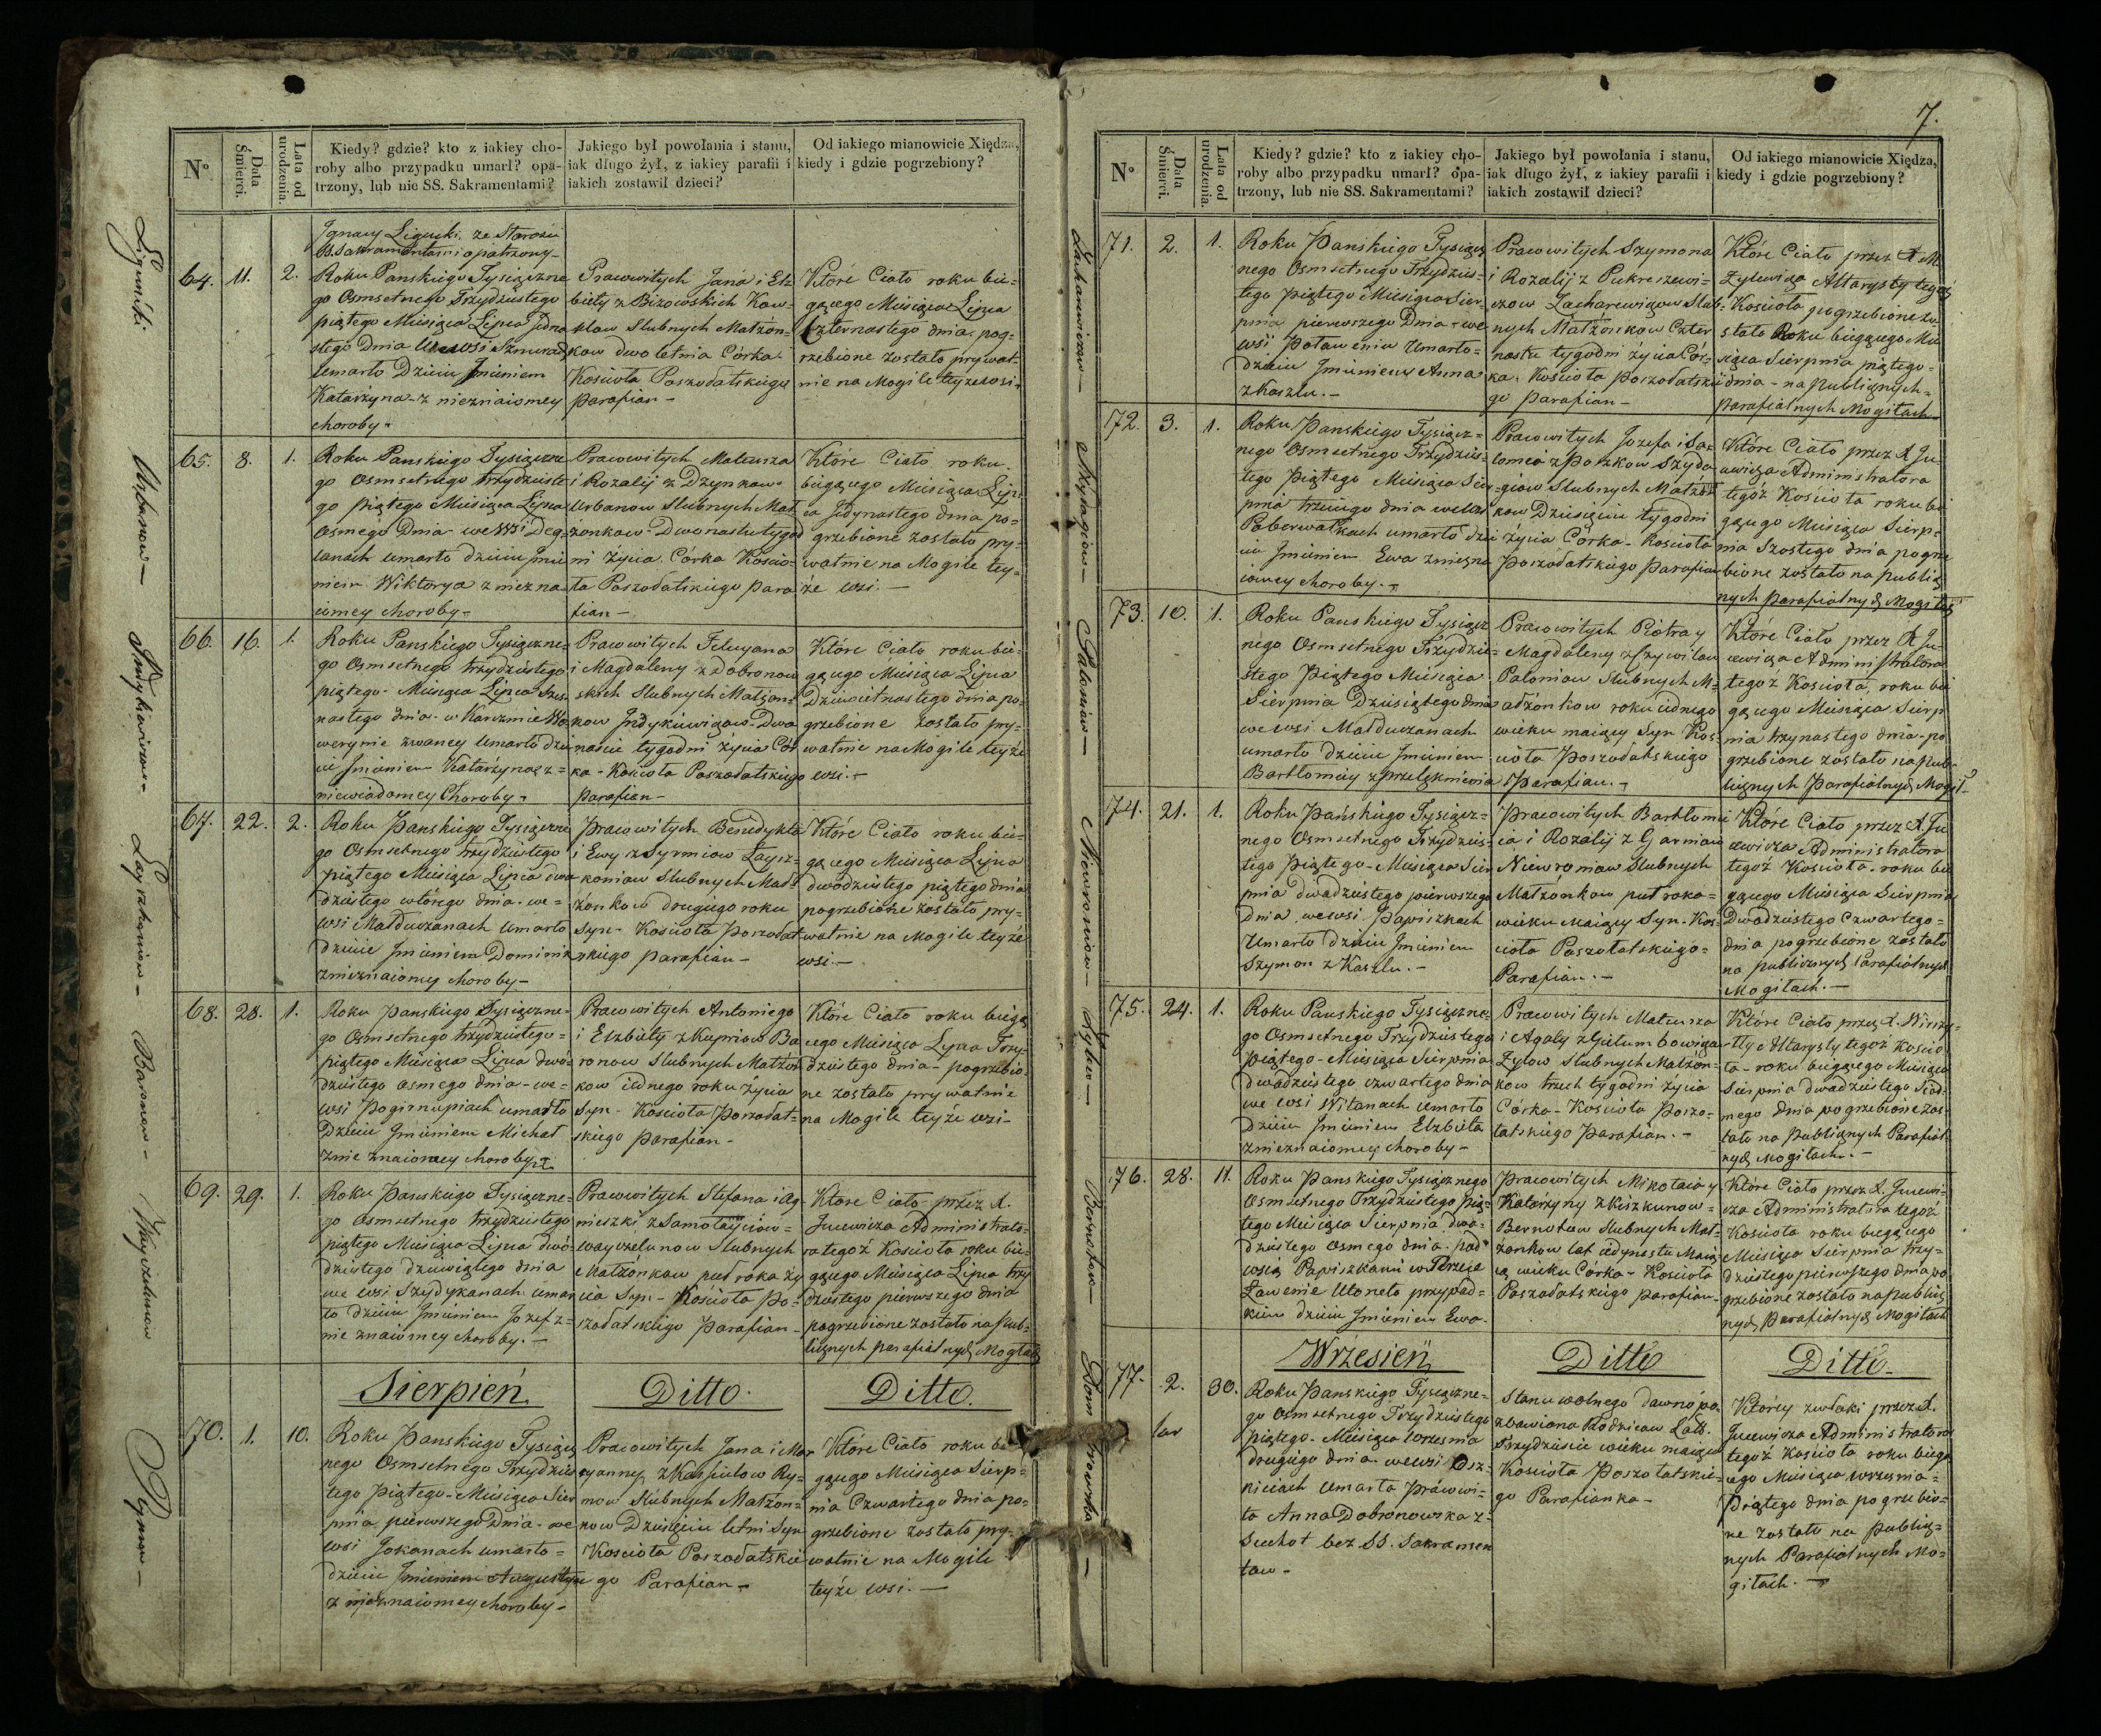 Nº
Data Śmierci.
Lata od urodzenia.
Kiedy? gdzie? kto z iakiey cho-
roby albo przypadku umarł? opa-
trzony, lub nie SS. Sakramentami?
Jakiego był powołania i stanu,
iak długo żył, z iakiey parafii i
iakich zostawił dzieci?
Od iakiego mianowicie Xiędza,
kiedy i gdzie pogrzebiony?
Ignacy Ligucki ze Starości
SS. Sakramentami opatrzony
64. 11. 2.
Roku Panskiego Tysiączne
go Osmsetnego Trzydziestego
piątego Miesiąca Lipca Jedna
stego Dnia we wsi
Umarło Dziecie Imieniem
Katarzyna z nieznaiomey
choroby
Pracowitych Jana i Elż
biety z
Slubnych Małżon
kow dwoletnia Córka
Kościoła Poszodatskiego
parafian
Które Ciało roku bie-
gącego Miesiąca Lipca
Czternastego dnia pog-
rzebione zostało prywat
nie na Mogile teyże wsi
65. 8. 1.
Roku Panskiego Tysiączne
go Osmsetnego trzydzieste
go piątego Miesiąca Lipca
Osmego Dnia we Wsi Deg-
lanach umarło dziecie Imie
niem Wiktorya z niezna
iomey choroby
Pracowitych Mateusza
i Rozalij z
Urbanow Slubnych Mał
żonkow Dwonastu tygod
ni życia Córka Kościo-
ła Poszodatskiego Para
fian
Które Ciało roku
biegącego Miesiąca Lip
ca Jedynastego dnia po-
grzebione zostało pry-
watnie na Mogile tey-
że wsi.
66. 16. 1.
Roku Panskiego Tysiączne-
go Osmsetnego trzydziestego
piątego Miesiąca Lipca Szes-
nastego dnia w Karczmie
zwaney Umarło dzie
cie Imieniem Katarzyna z-
niewiadomey Choroby
Pracowitych Felicyana
i Magdaleny z Dobronow
skich Slubnych Małżon-
kow Indykiewiczow Dwa
naście tygodni życia Cór
ka Kościoła Poszodatskiego
parafian
Które Ciało roku bie-
gącego Miesiąca Lipca
Dziewietnastego dnia po-
grzebione zostało pry-
watnie na Mogile teyże
wsi.
67. 22. 2.
Roku Panskiego Tysiączne
go Osmsetnego trzydziestego
piątego Miesiąca Lipca dwa
dziestego wtórego dnia we-
wsi Małduczanach Umarło
dziecie Imieniem Dominik
z nieznaiomey choroby
Pracowitych Benedykta
i Ewy z Syrmiow Łaysz-
koniow Slubnych Mał-
żonkow drugiego roku
Syn Kościoła Poszodat
skiego parafian
Które Ciało roku bie-
gącego Miesiąca Lipca
dwudziestego piątego dnia
pogrzebione zostało pry-
watnie na Mogile teyże
wsi.
68. 28. 1.
Roku Panskiego Tysiączne-
go Osmsetnego trzydziestego-
piątego Miesiąca Lipca dwó-
dziestego osmego dnia we-
wsi Pogirnupiach umarło
Dziecie Imieniem Michał
z nie znaiomey choroby
Pracowitych Antoniego
i Elzbiety z Kupriow Ba
ronow Slubnych Małżon
kow iednego roku życia
Syn Kościoła Poszodat-
skiego parafian
Które Ciało roku biegą
cego Miesiąca Lipca Trzy-
dziestego dnia pogrzebio-
ne zostało prywatnie
na Mogile teyże wsi
69. 29. 1.
Roku Panskiego Tysiączne-
go Osmsetnego trzydziestego
piątego Miesiąca Lipca dwó-
dziestego dziewiątego dnia
we wsi Szydyskanach umar
ło dziecie Imieniem Jozef z-
nie znaiomey choroby.
Pracowitych Stefana i Ag-
nieszki z
Wayczelunow Slubnych
Małżonkow puł roka ży
cia Syn Kościoła Po-
szodatskiego Parafian
Ktore Ciało przez X.
Jucewicza Administrato-
ra tegoż Kościoła roku bie-
gącego Miesiąca Lipca trzy
dziestego pierwszego dnia
pogrzebione zostało na pub-
licznych parafialnych Mogiłach
Sierpień Ditto. Ditto.
70. 1. 10.
Roku Panskiego Tysiącz
nego Osmsetnego Trzydzies
tego piątego Miesiąca Sier
pnia pierwszego Dnia we
wsi Joskanach umarło
dziecie Imieniem Augustyn
z nieznaiomey choroby
Pracowitych Jana i Mar
yanny z Ry-
mow Slubnych Małżon-
kow Dziesięcio letni Syn
Kościoła Poszodatskie
go Parafian
Które Ciało roku bie-
gącego Miesiąca Sierp-
nia Czwartego dnia po-
grzebione zostało pry-
watnie na Mogile
teyże wsi.
Ligucki
Urbanow
Indykiewiczow
Łayszkoniow
Baronow
Wayczelunow
Rymow
7.
Nº
Data Śmierci.
Lata od urodzenia.
Kiedy? gdzie? kto z iakiey cho-
roby albo przypadku umarł? opa-
trzony, lub nie SS. Sakramentami?
Jakiego był powołania i stanu,
iak długo żył, z iakiey parafii i
iakich zostawił dzieci?
Od iakiego mianowicie Xiędza,
kiedy i gdzie pogrzebiony?
71. 2. 1.
Roku Panskiego Tysiącz
nego Osmsetnego Trzydzies-
tego piątego Miesiąca Sier-
pnia pierwszego Dnia we
wsi Poławeniu Umarło
dziecie Imieniem Anna
z Kaszlu.
Pracowitych Szymona
i Rozalij z Pukreszewi-
czow Zacharewiczow Slub-
nych Małżonkow Czter
nastu tygodni życia Cór-
ka. Kościoła Poszodatskie
go Parafian
Które Ciało przez X. M.
Zylewicza Altarystę tegoż
Kościoła pogrzebione zo
stało Roku biegącego Mie
siąca Sierpnia piątego
dnia na publicznych
Parafialnych Mogiłach
72. 3. 1.
Roku Panskiego Tysiącz-
nego Osmsetnego Trzydzies-
tego Piątego Miesiąca Sier
pnia trzeciego dnia we wsi
Poberwałkach umarło dzie
cie Imieniem Ewa z niezna
iomey choroby.
Pracowitych Jozefa i Sa-
lomei z Poszkow Szyda
giow Slubnych Małżon
kow Dziesięciu tygodni
życia Córka Kościoła
Poszodatskiego Parafian
Które Ciało przez X. Ju
cewicza Administratora
tegoż Kościoła roku bie
gącego Miesiąca Sierp-
nia Szostego dnia pogrze
bione zostało na publicz
nych Parafialnych Mogiłach
73. 10. 1.
Roku Panskiego Tysiącz
nego Osmsetnego Trzydzie-
stego Piątego Miesiąca
Sierpnia Dziesiątego dnia
we wsi Małduczanach
umarło dziecie Imieniem
Bartłomiey z przelęknienia
Pracowitych Piotra y
Magdaleny z
Paloniow Slubnych M-
ałżonkow roku iednego
wieku maiący Syn Koś-
cioła Poszodatskiego
Parafian.
Które Ciało przez X. Ju-
cewicza Administratora
tegoż Kościoła, roku bie
gącego Miesiąca Sierp
nia trzynastego dnia po
grzebione zostało na pub-
licznych Parafialnych Mogił.
74. 21. 1.
Roku Pańskiego Tysiącz-
nego Osmsetnego Trzydzies-
tego Piątego Miesiąca Sier
pnia dwadziestego pierwszego
dnia we wsi Papiszkach
Umarło dziecie Imieniem
Szymon z Kaszlu.
Pracowitych Bartłomie
ia i Rozalij z Garniow
Niewroniow Slubnych
Małżonkow puł roka
wieku maiący Syn Koś-
cioła Poszołatskiego
Parafian.
Które Ciało przez X. Ju
cewicza Administratora
tegoż Kościoła roku bie
gącego Miesiąca Sierpnia
Dwadziestego Czwartego
dnia pogrzebione zostało
na publicznych Parafialnych
Mogiłach.
75. 24. 1.
Roku Panskiego Tysiączne
go Osmsetnego Trzydziestego
piątego Miesiąca Sierpnia
dwadziestego czwartego dnia
we wsi Witanach umarło
Dziecie Imieniem Elzbieta
z nieznaiomey choroby
Pracowitych Mateusza
i Agaty z Gielumbowicza
Zylow Slubnych Małżon-
kow trzech tygodni życia
Córka Kościoła Poszo-
łatskiego Parafian.
Które Ciało przez X.
Altarystę tegoż Kościo
ła roku biegącego Miesiąca
Sierpnia dwadziestego Siód
mego dnia pogrzebione zos-
tało na publicznych Parafial
nych Mogiłach.
76. 28. 11.
Roku Panskiego Tysiącznego
Osmsetnego Trzydziestego Pią-
tego Miesiąca Sierpnia dwa-
dziestego osmego dnia pod
wsią Papiszkami w Rzece
Ławenie Utoneło przypad-
kiem dziecie Imieniem Ewa
Pracowitych Mikołaia y
Katarzyny z Kiszkunow
Bernotow Slubnych Mał-
żonkow lat iedynastu Maią
cą wieku Córka Kościoła
Poszodatskiego parafian
Które Ciało przez X. Jucewi-
cza Administratora tegoż
Kościoła roku biegącego
Miesiąca Sierpnia trzy-
dziestego pierwszego dnia po
grzebione zostało na publicz
nych Parafialnych Mogiłach
Wrzesień Ditto Ditto
77. 2. 30.
Roku Panskiego Tysiączne-
go Osmsetnego Trzydziestego
piątego Miesiąca Wrzesnia
drugiego dnia we wsi Osz-
kiciach Umarła Pracowi-
ta Anna Dobronowska z-
Suchot bez SS. Sakramen
tow
Stanu wolnego dawno po
zbawiona Rodzicow Lat
Trzydzieście wieku maiąca
Kościoła Poszołatskie
go Parafianka
Którey zwłoki przez X.
Jucewicza Administratora
tegoż Kościoła roku biegą
cego Miesiąca Wrzesnia
Piątego dnia pogrzebio-
ne zostało na publicz-
nych Parafialnych Mo-
giłach.
Zacharewiczow
Szydagiow
Paloniow
Niewroniow
Zylow
Bernotow